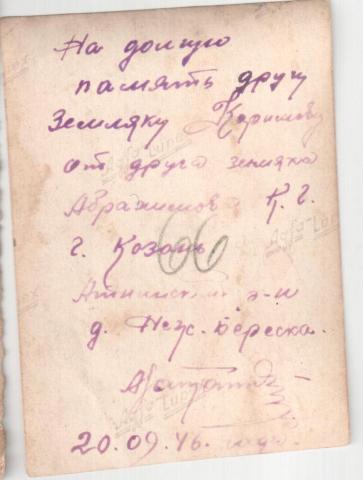 На долгую
память другу
Земляку Каримову
от друга земляка
Абрахимова К. Г.
г. Козань
66
Атнинский р-н
д. Неж. Береска.
20.09.46. года.
Agfa Lupex